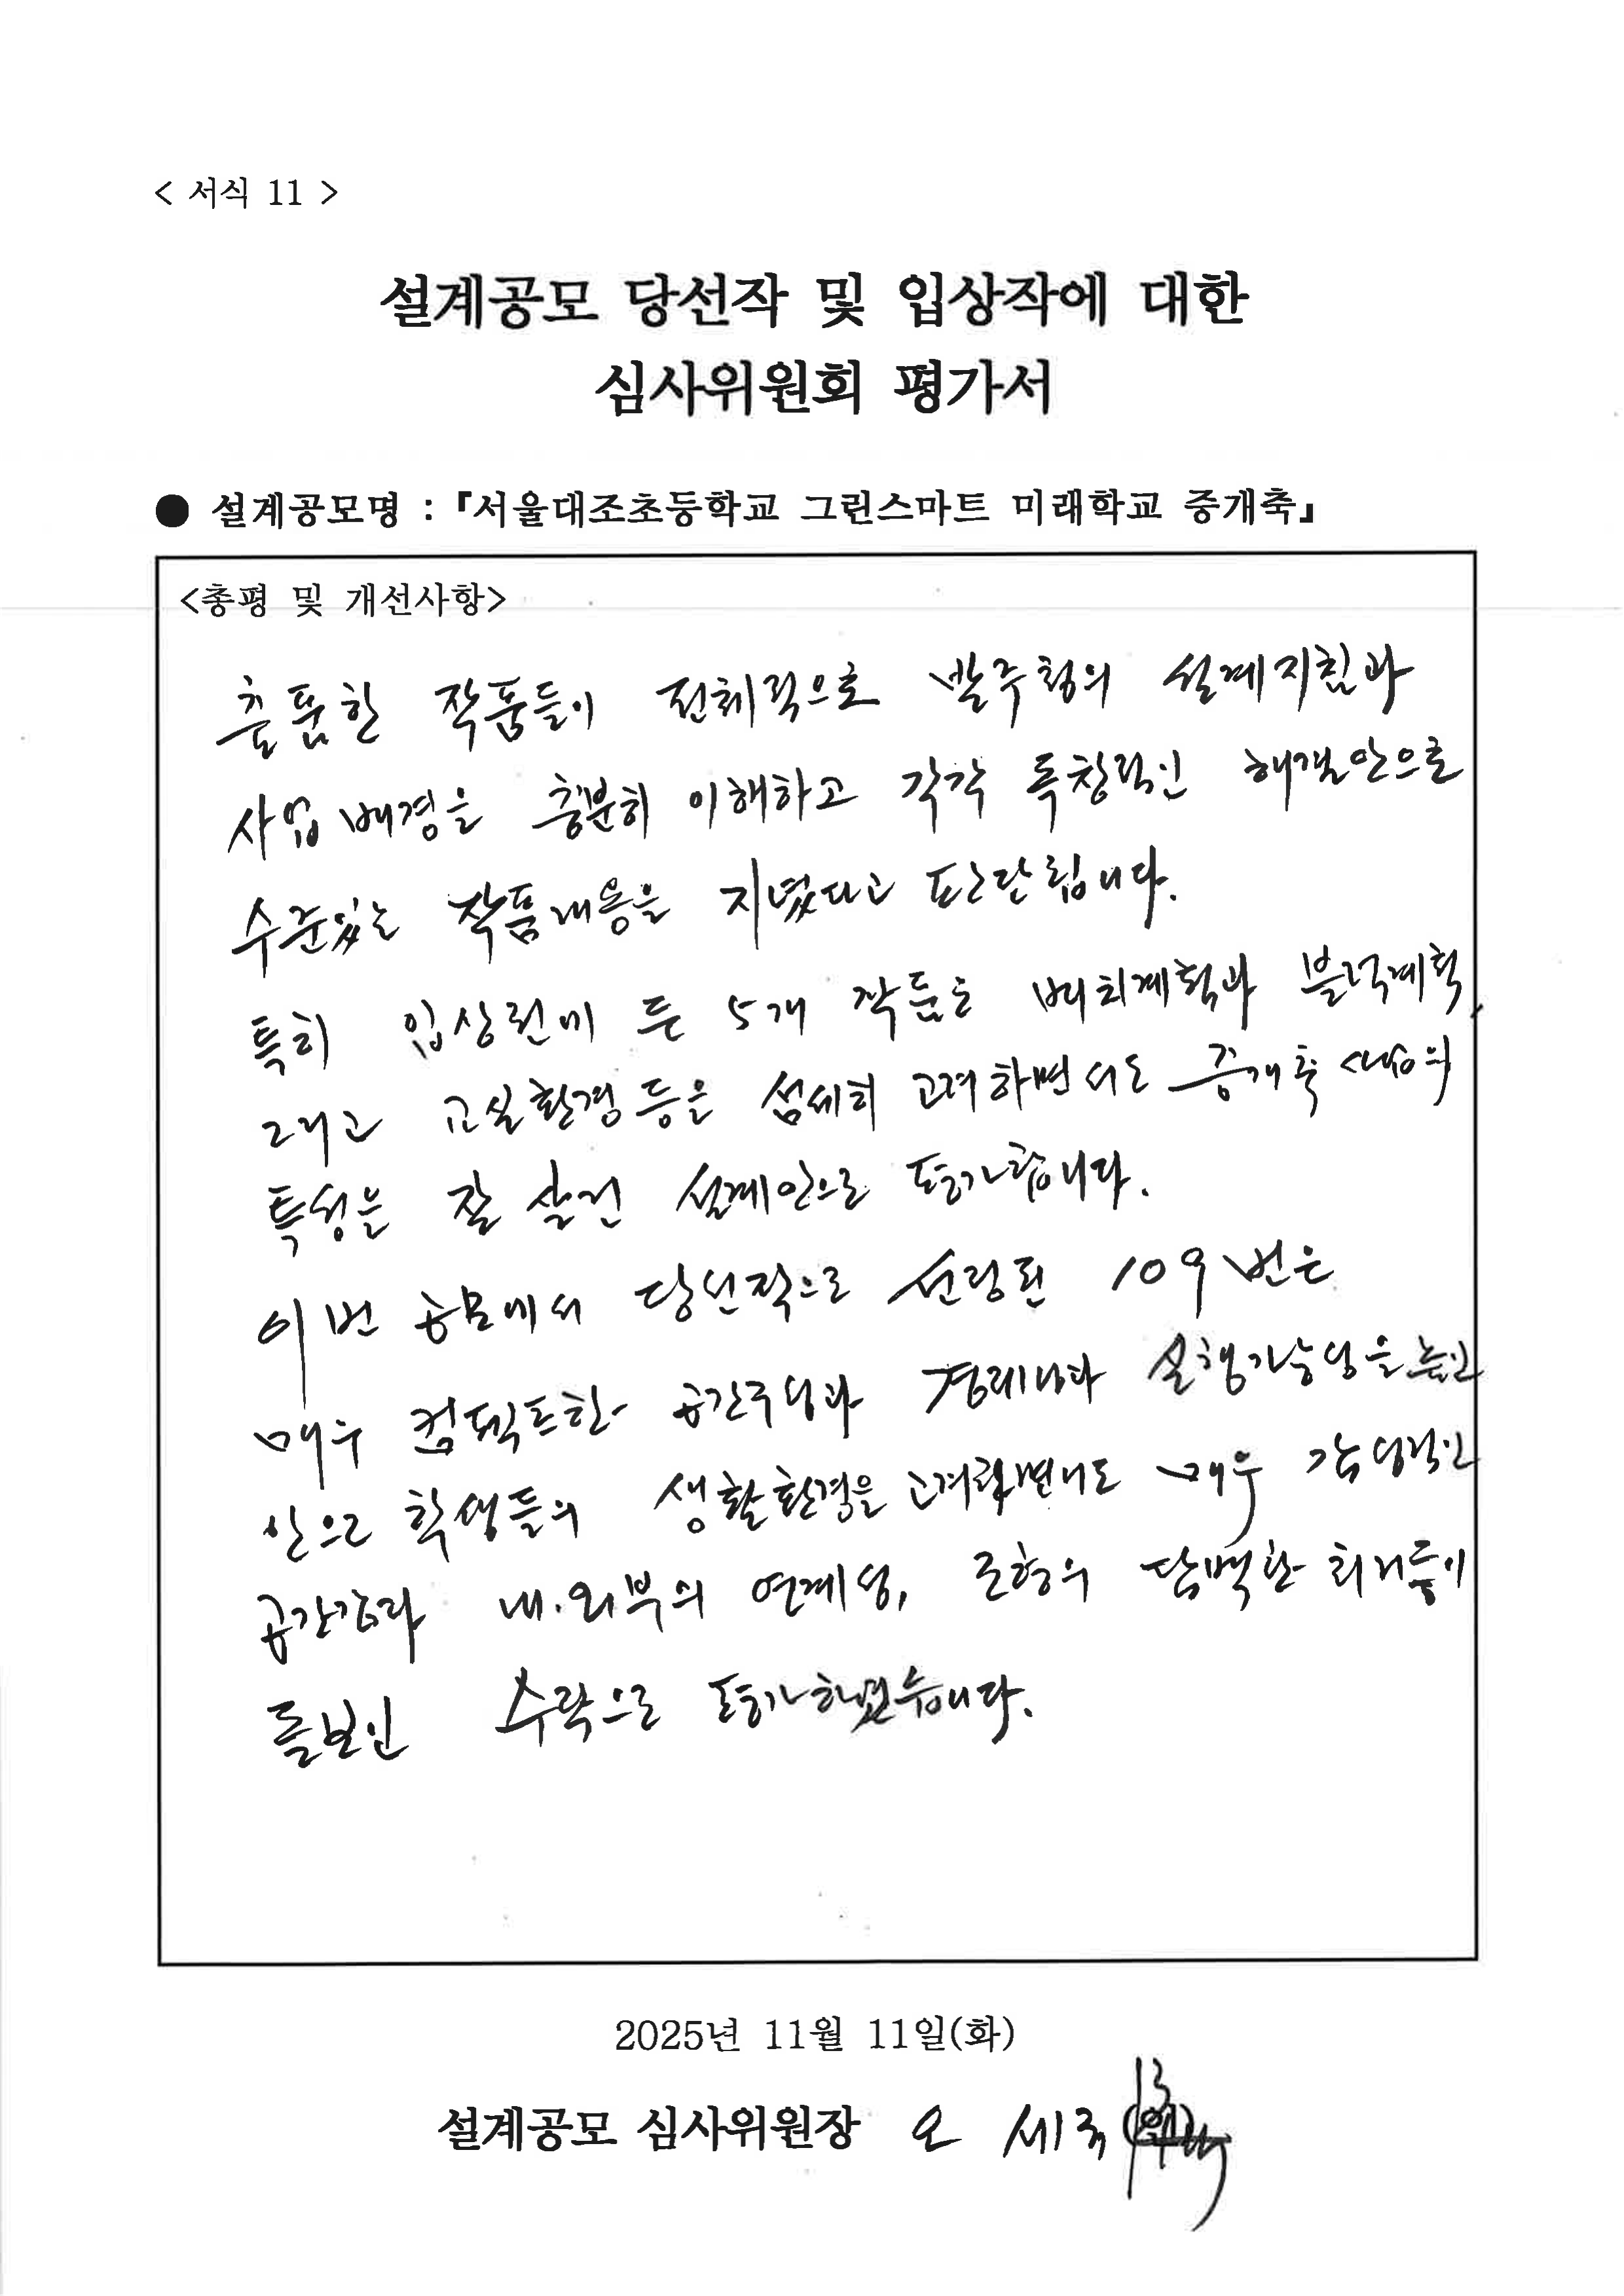 < 서식 11 >
설계공모 당선작 및 입상작에 대한
심사위원회 평가서
● 설계공모명 : 『서울대조초등학교 그린스마트 미래학교 증개축』
<총평 및 개선사항>
출품한 작품들이 전체적으로 발주청의 설계지침과
사업배경을 충분히 이해하고 각각 독창적인 해결안으로
수준있는 작품내용을 지녔다고 판단됩니다.
특히 입상권에 든 5개 작품은 배치계획과 블럭계획,
그리고 교실환경 등을 섬세히 고려하면서도 증개축 사업의
특성을 잘 살린 설계안으로 평가합니다.
이번 공모에서 당선작으로 선정된 109번은
매우 컴펙트한 공간구성과 실행가능성을 높인
안으로 학생들의 생활환경을 고려하면서도 매우 감성적인
공간감과 내·외부의 연계성, 조형의 담백한 처리등이
돋보인 수작으로 평가하였습니다.
2025년 11월 11일(화)
설계공모 심사위원장 오 세